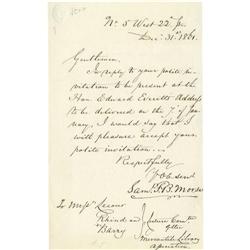 No 5 West 22 St
Dec: 31st 1861.
Gentlemen.
In reply to your polite in
vitation to be present at the
Hon. Edward Everetts Address
to be delivered on the 7 of Jan
uary, I would say that I
will pleasure accept your
polite invitation
Respectfully
Yr Ob. servt
Saml. F. B. Morse
To Messrs
Rhind and
Barry
Lecture Comte
of the
Mercantile Library
Association